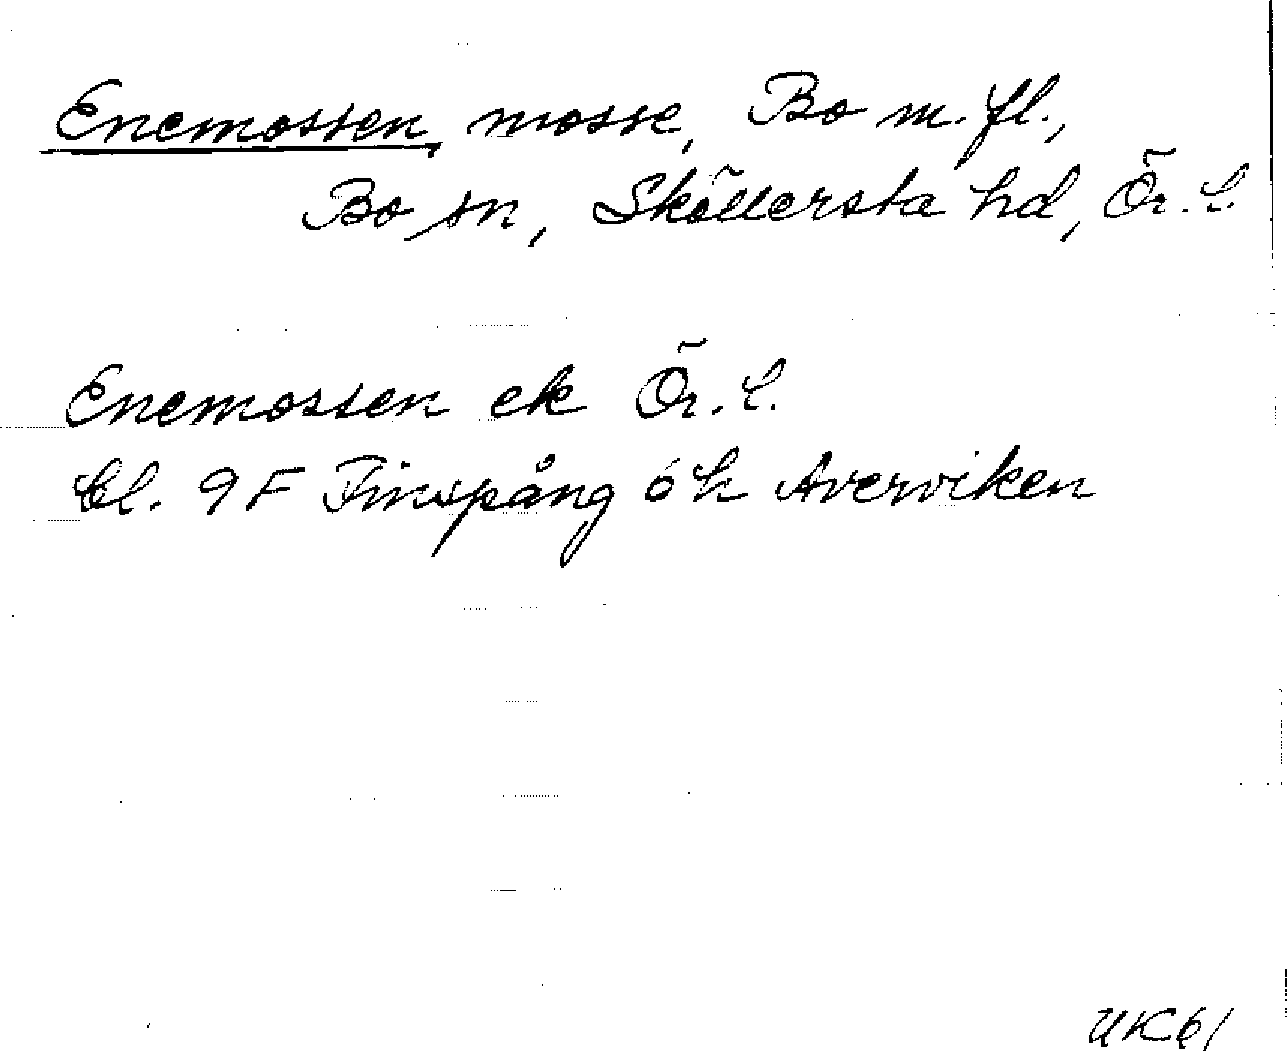 Enemossen, mosse, Bo m. fl.,
Bo sn, Sköllersta hd, Ör. l.
Enemossen ek Ör. l.
bl. 9F Finspång 6 h Averviken
UK61